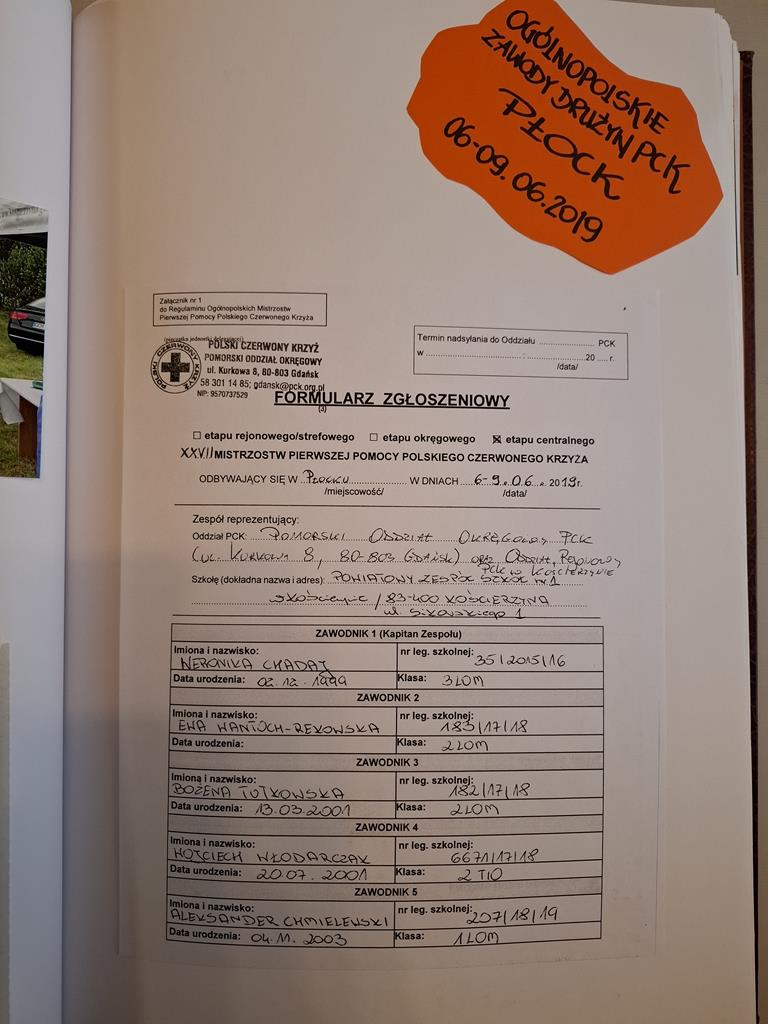 OGÓLNOPOLSKIE
ZAWODY DRUŻYN PCK
PŁOCK
06-09.06.2019
Załącznik nr 1
do Regulaminu Ogólnopolskich Mistrzostw
Pierwszej Pomocy Polskiego Czerwonego Krzyża
(pieczątka jednostki delegującej)
POLSKI CZERWONY KRZYŻ
POMORSKI ODDZIAŁ OKRĘGOWY
ul. Kurkowa 8, 80-803 Gdańsk
58 301 14 85; gdansk@pck.org.pl
NIP: 9570737529
(3)
POLSKI CZERWONY KRZYŻ
Termin nadsyłania do Oddziału .................. PCK
w ............................ : .................. 20 ..... r.
/data/
FORMULARZ ZGŁOSZENIOWY
☐ etapu rejonowego/strefowego ☐ etapu okręgowego ☒ etapu centralnego
XXVII MISTRZOSTW PIERWSZEJ POMOCY POLSKIEGO CZERWONEGO KRZYŻA
ODBYWAJĄCY SIĘ W Płocku W DNIACH 6-9.06.2019r.
/miejscowość/ /data/
Zespół reprezentujący:
Oddział PCK: POMORSKI ODDZIAŁ OKRĘGOWY PCK
(UL. KURKOWA 8, 80-803 GDAŃSK) oraz ODDZIAŁ REJONOWY
PCK w KOŚCIERZYNIE
Szkołę (dokładna nazwa i adres): POWIATOWY ZESPÓŁ SZKÓŁ nr 1
/ 83-400 KOŚCIERZYNA
ul. Sikorskiego 1
ZAWODNIK 1 (Kapitan Zespołu)
Imiona i nazwisko: WERONIKA CHADAJ nr leg. szkolnej: 35/2015/16
Data urodzenia: 02.12.1999 Klasa: 3LOM
ZAWODNIK 2
Imiona i nazwisko: EWA WANTOCH-REKOWSKA nr leg. szkolnej: 183/17/18
Data urodzenia: Klasa: 2LOM
ZAWODNIK 3
Imiona i nazwisko: BOŻENA TUTKOWSKA nr leg. szkolnej: 182/17/18
Data urodzenia: 13.03.2001 Klasa: 2LOM
ZAWODNIK 4
Imiona i nazwisko: WOJCIECH WŁODARCZAK nr leg. szkolnej: 6671/17/18
Data urodzenia: 20.07.2001 Klasa: 2 TIO
ZAWODNIK 5
Imiona i nazwisko: ALEKSANDER CHMIELEWSKI nr leg. szkolnej: 207/18/19
Data urodzenia: 04.11.2003 Klasa: 1LOM